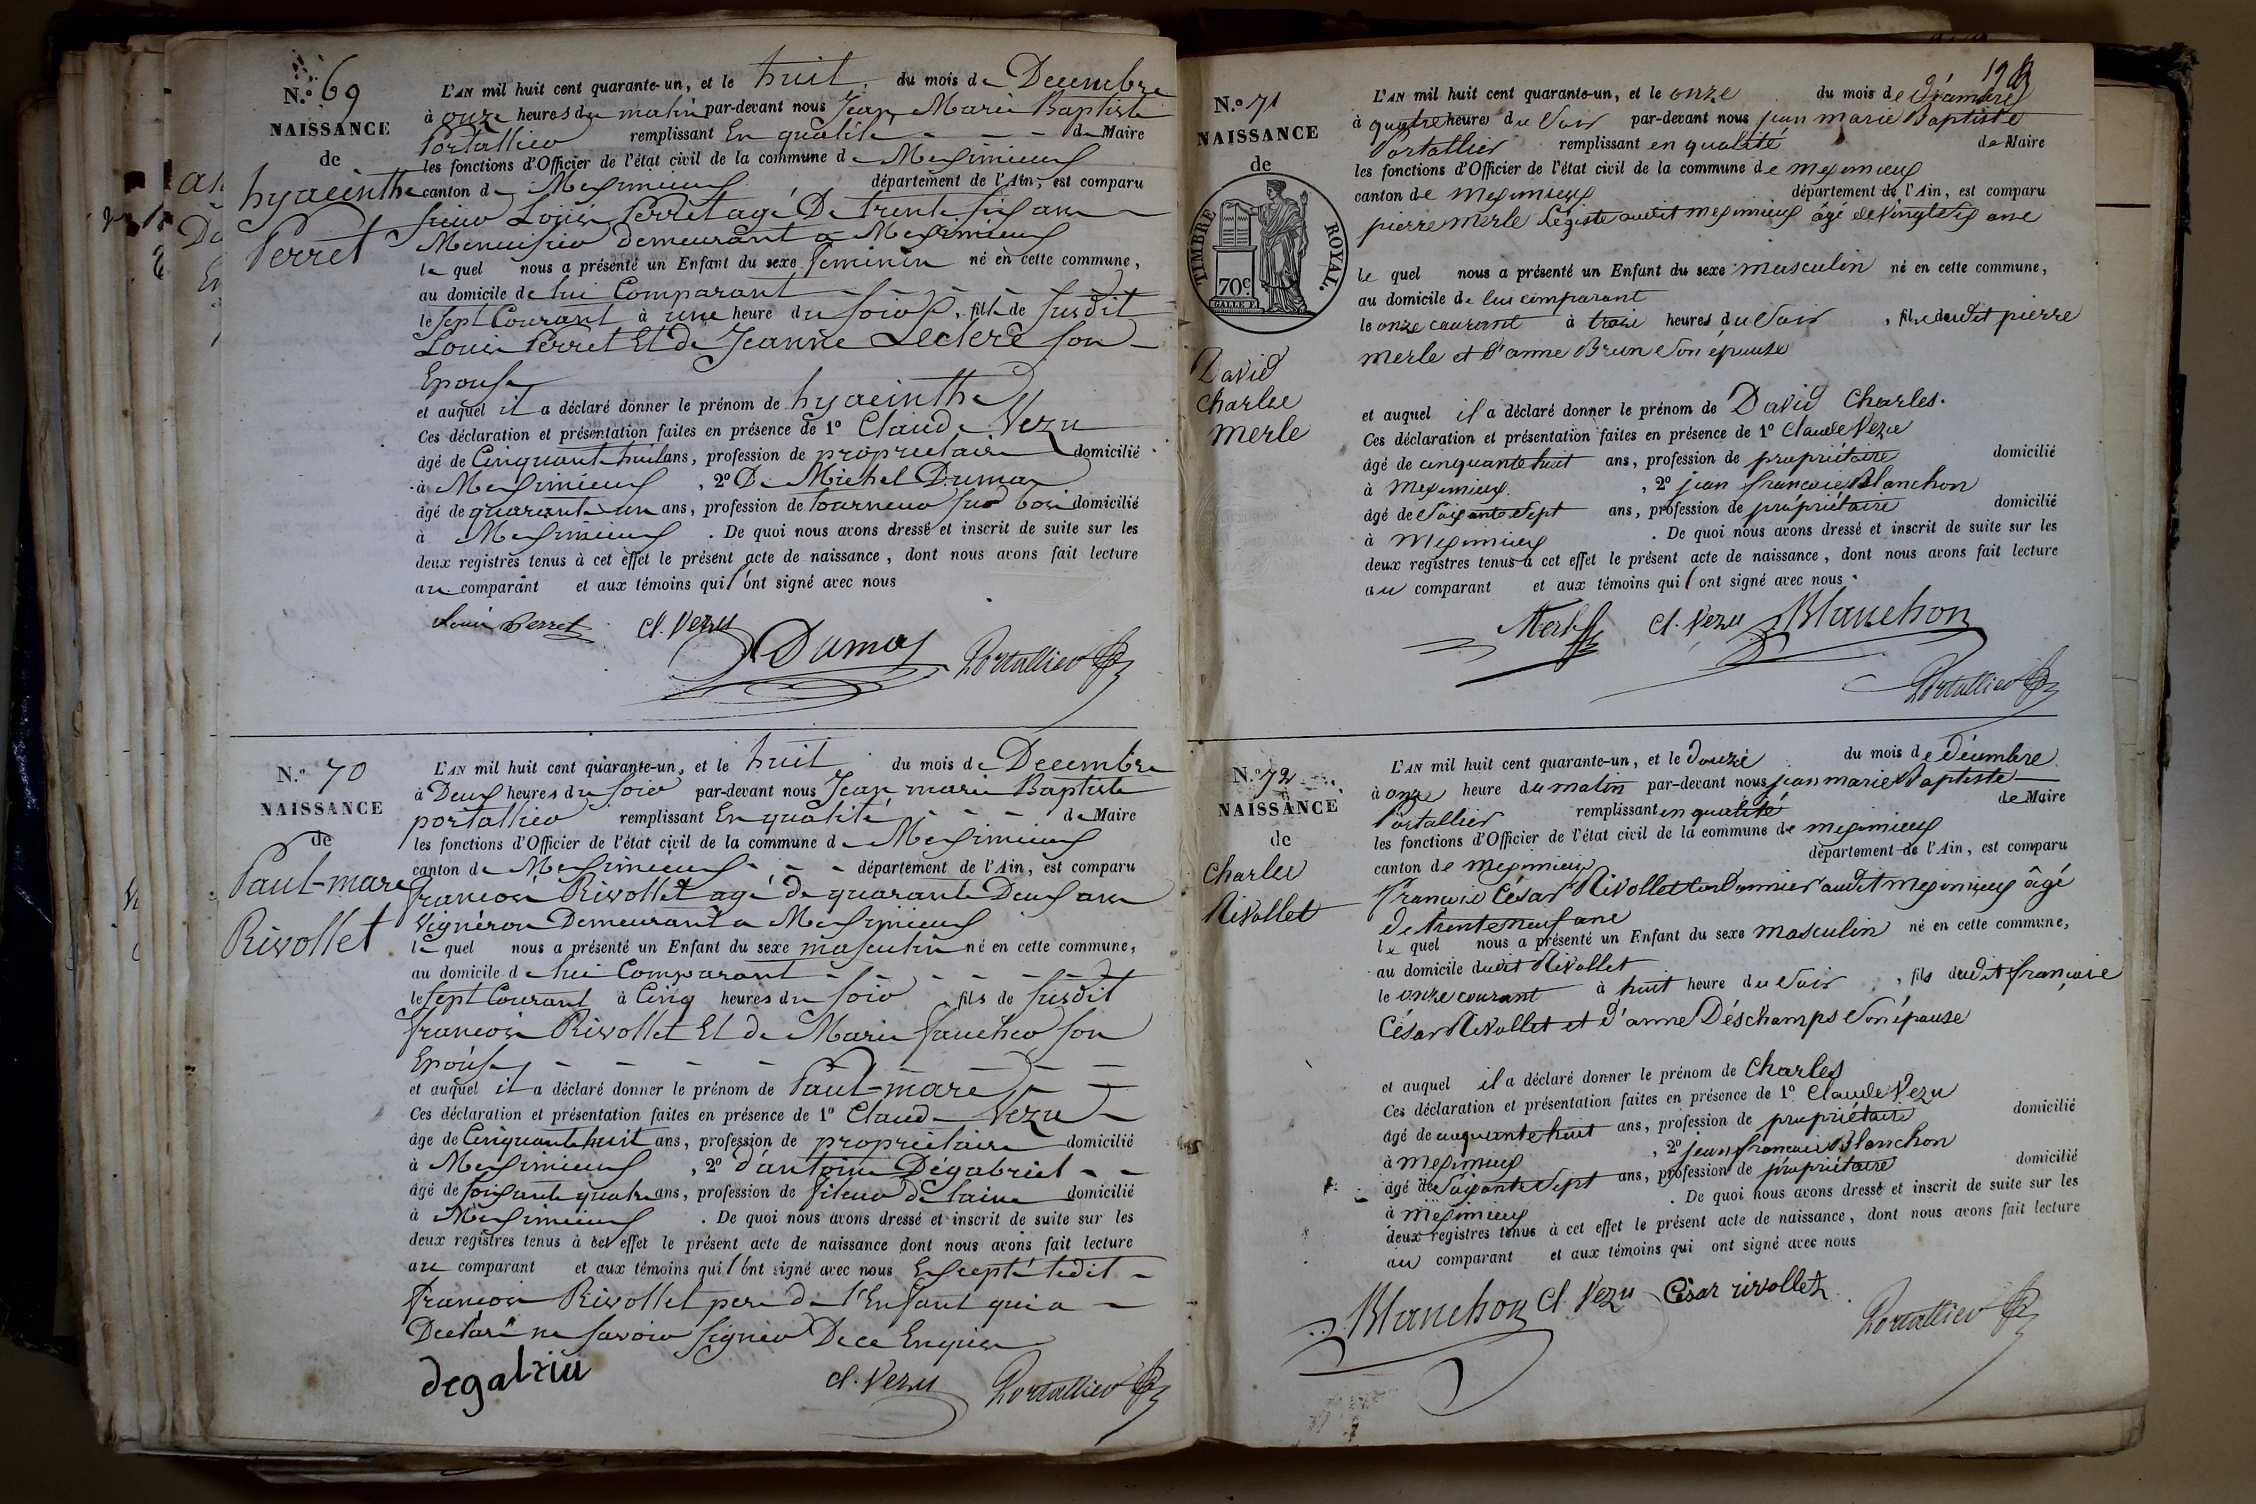 N.º 69
NAISSANCE
de
hyacinthe
Perret
L'AN mil huit cent quarante-un, et le huit du mois de Decembre
à onze heures du matin par-devant nous Jean Marie Baptiste
Portallier remplissant En qualité de Maire
les fonctions d'Officier de l'état civil de la commune de Meximieux
canton de Meximieux département de l'Ain, est comparu
sieur Louis Perret agé De trente six ans
Menuisier demeurant a Meximieux
le quel nous a présenté un Enfant du sexe feminin né en cette commune,
au domicile de lui Comparant
le sept Courant à une heure du soir, fils de susdit
Louis Perret Et De Jeanne Leclere son
Epouse
et auquel il a déclaré donner le prénom de hyacinthe
Ces déclaration et présentation faites en présence de 1º Claude Vezu
âgé de Cinquante huit ans, profession de propriétaire domicilié
à Meximieux, 2º De Michel Dumas
âgé de quarante un ans, profession de tourneur sur bois domicilié
à Meximieux. De quoi nous avons dressé et inscrit de suite sur les
deux registres tenus à cet effet le présent acte de naissance, dont nous avons fait lecture
au comparant et aux témoins qui l'ont signé avec nous
Louis Perret Cl. Vezu
Dumas Portallier
N.º 70
NAISSANCE
de
Paul-marc
Rivollet
L'AN mil huit cent quarante-un, et le huit du mois de Decembre
à Deux heures du soir par-devant nous Jean marie Baptiste
portallier remplissant En qualité de Maire
les fonctions d'Officier de l'état civil de la commune de Meximieux
canton de Meximieux département de l'Ain, est comparu
francois Rivollet agé de quarante Deux ans
Vigneron Demeurant a Meximieux
le quel nous a présenté un Enfant du sexe masculin né en cette commune,
au domicile de lui Comparant
le sept Courant à Cinq heures du soir fils de susdit
francois Rivollet Et de Marie faucher son
Epouse
et auquel il a déclaré donner le prénom de Paul-marc
Ces déclaration et présentation faites en présence de 1º Claude Vezu
âgé de Cinquante huit ans, profession de propriétaire domicilié
à Meximieux, 2º d'antoine Dégabriel
âgé de soixante quatre ans, profession de fileur de laine domicilié
à Meximieux. De quoi nous avons dressé et inscrit de suite sur les
deux registres tenus à cet effet le présent acte de naissance dont nous avons fait lecture
au comparant et aux témoins qui l'ont signé avec nous Excepté ledit
francois Rivollet pere de l'Enfant qui a
Declaré ne savoir signer De ce Enquis
degabriu Cl. Vezu Portallier
N.º 71
NAISSANCE
de
TIMBRE ROYAL.
70c.
GALLE F.
David
Charles
Merle
L'AN mil huit cent quarante-un, et le onze du mois de Décembre
à quatre heures du Soir par-devant nous jean marie Baptiste
Portallier remplissant en qualité de Maire
les fonctions d'Officier de l'état civil de la commune de meximieux
canton de meximieux département de l'Ain, est comparu
pierre merle Légiste audit meximieux âgé de vingt six ans
le quel nous a présenté un Enfant du sexe masculin né en cette commune,
au domicile de lui comparant
le onze courant à trois heures du Soir, fils dudit pierre
merle et d'anne Brun Son épouse
et auquel il a déclaré donner le prénom de David Charles.
Ces déclaration et présentation faites en présence de 1º Claude Vezu
âgé de cinquante huit ans, profession de propriétaire domicilié
à meximieux, 2º jean françois Blanchon
âgé de Soixante Sept ans, profession de propriétaire domicilié
à meximieux. De quoi nous avons dressé et inscrit de suite sur les
deux registres tenus à cet effet le présent acte de naissance, dont nous avons fait lecture
au comparant et aux témoins qui l'ont signé avec nous.
Merle Cl. Vezu Blanchon
Portallier
N.º 72
NAISSANCE
de
Charles
Rivollet
L'AN mil huit cent quarante-un, et le douze du mois de décembre
à onze heure du matin par-devant nous jean marie Baptiste
Portallier remplissant en qualité de Maire
les fonctions d'Officier de l'état civil de la commune de meximieux
canton de meximieux département de l'Ain, est comparu
François César Rivollet Cordonnier audit meximieux âgé
de trente neuf ans
le quel nous a présenté un Enfant du sexe masculin né en cette commune,
au domicile dudit Rivollet
le onze courant à huit heure du Soir, fils dudit françois
César Rivollet et d'anne Déschamps Son épouse
et auquel il a déclaré donner le prénom de Charles
Ces déclaration et présentation faites en présence de 1º Claude Vezu
âgé de cinquante huit ans, profession de propriétaire domicilié
à meximieux, 2º jean françois Blanchon
âgé de Soixante Sept ans, profession de propriétaire domicilié
à meximieux. De quoi nous avons dressé et inscrit de suite sur les
deux registres tenus à cet effet le présent acte de naissance, dont nous avons fait lecture
au comparant et aux témoins qui ont signé avec nous
Blanchon Cl. Vezu César rivollet
Portallier